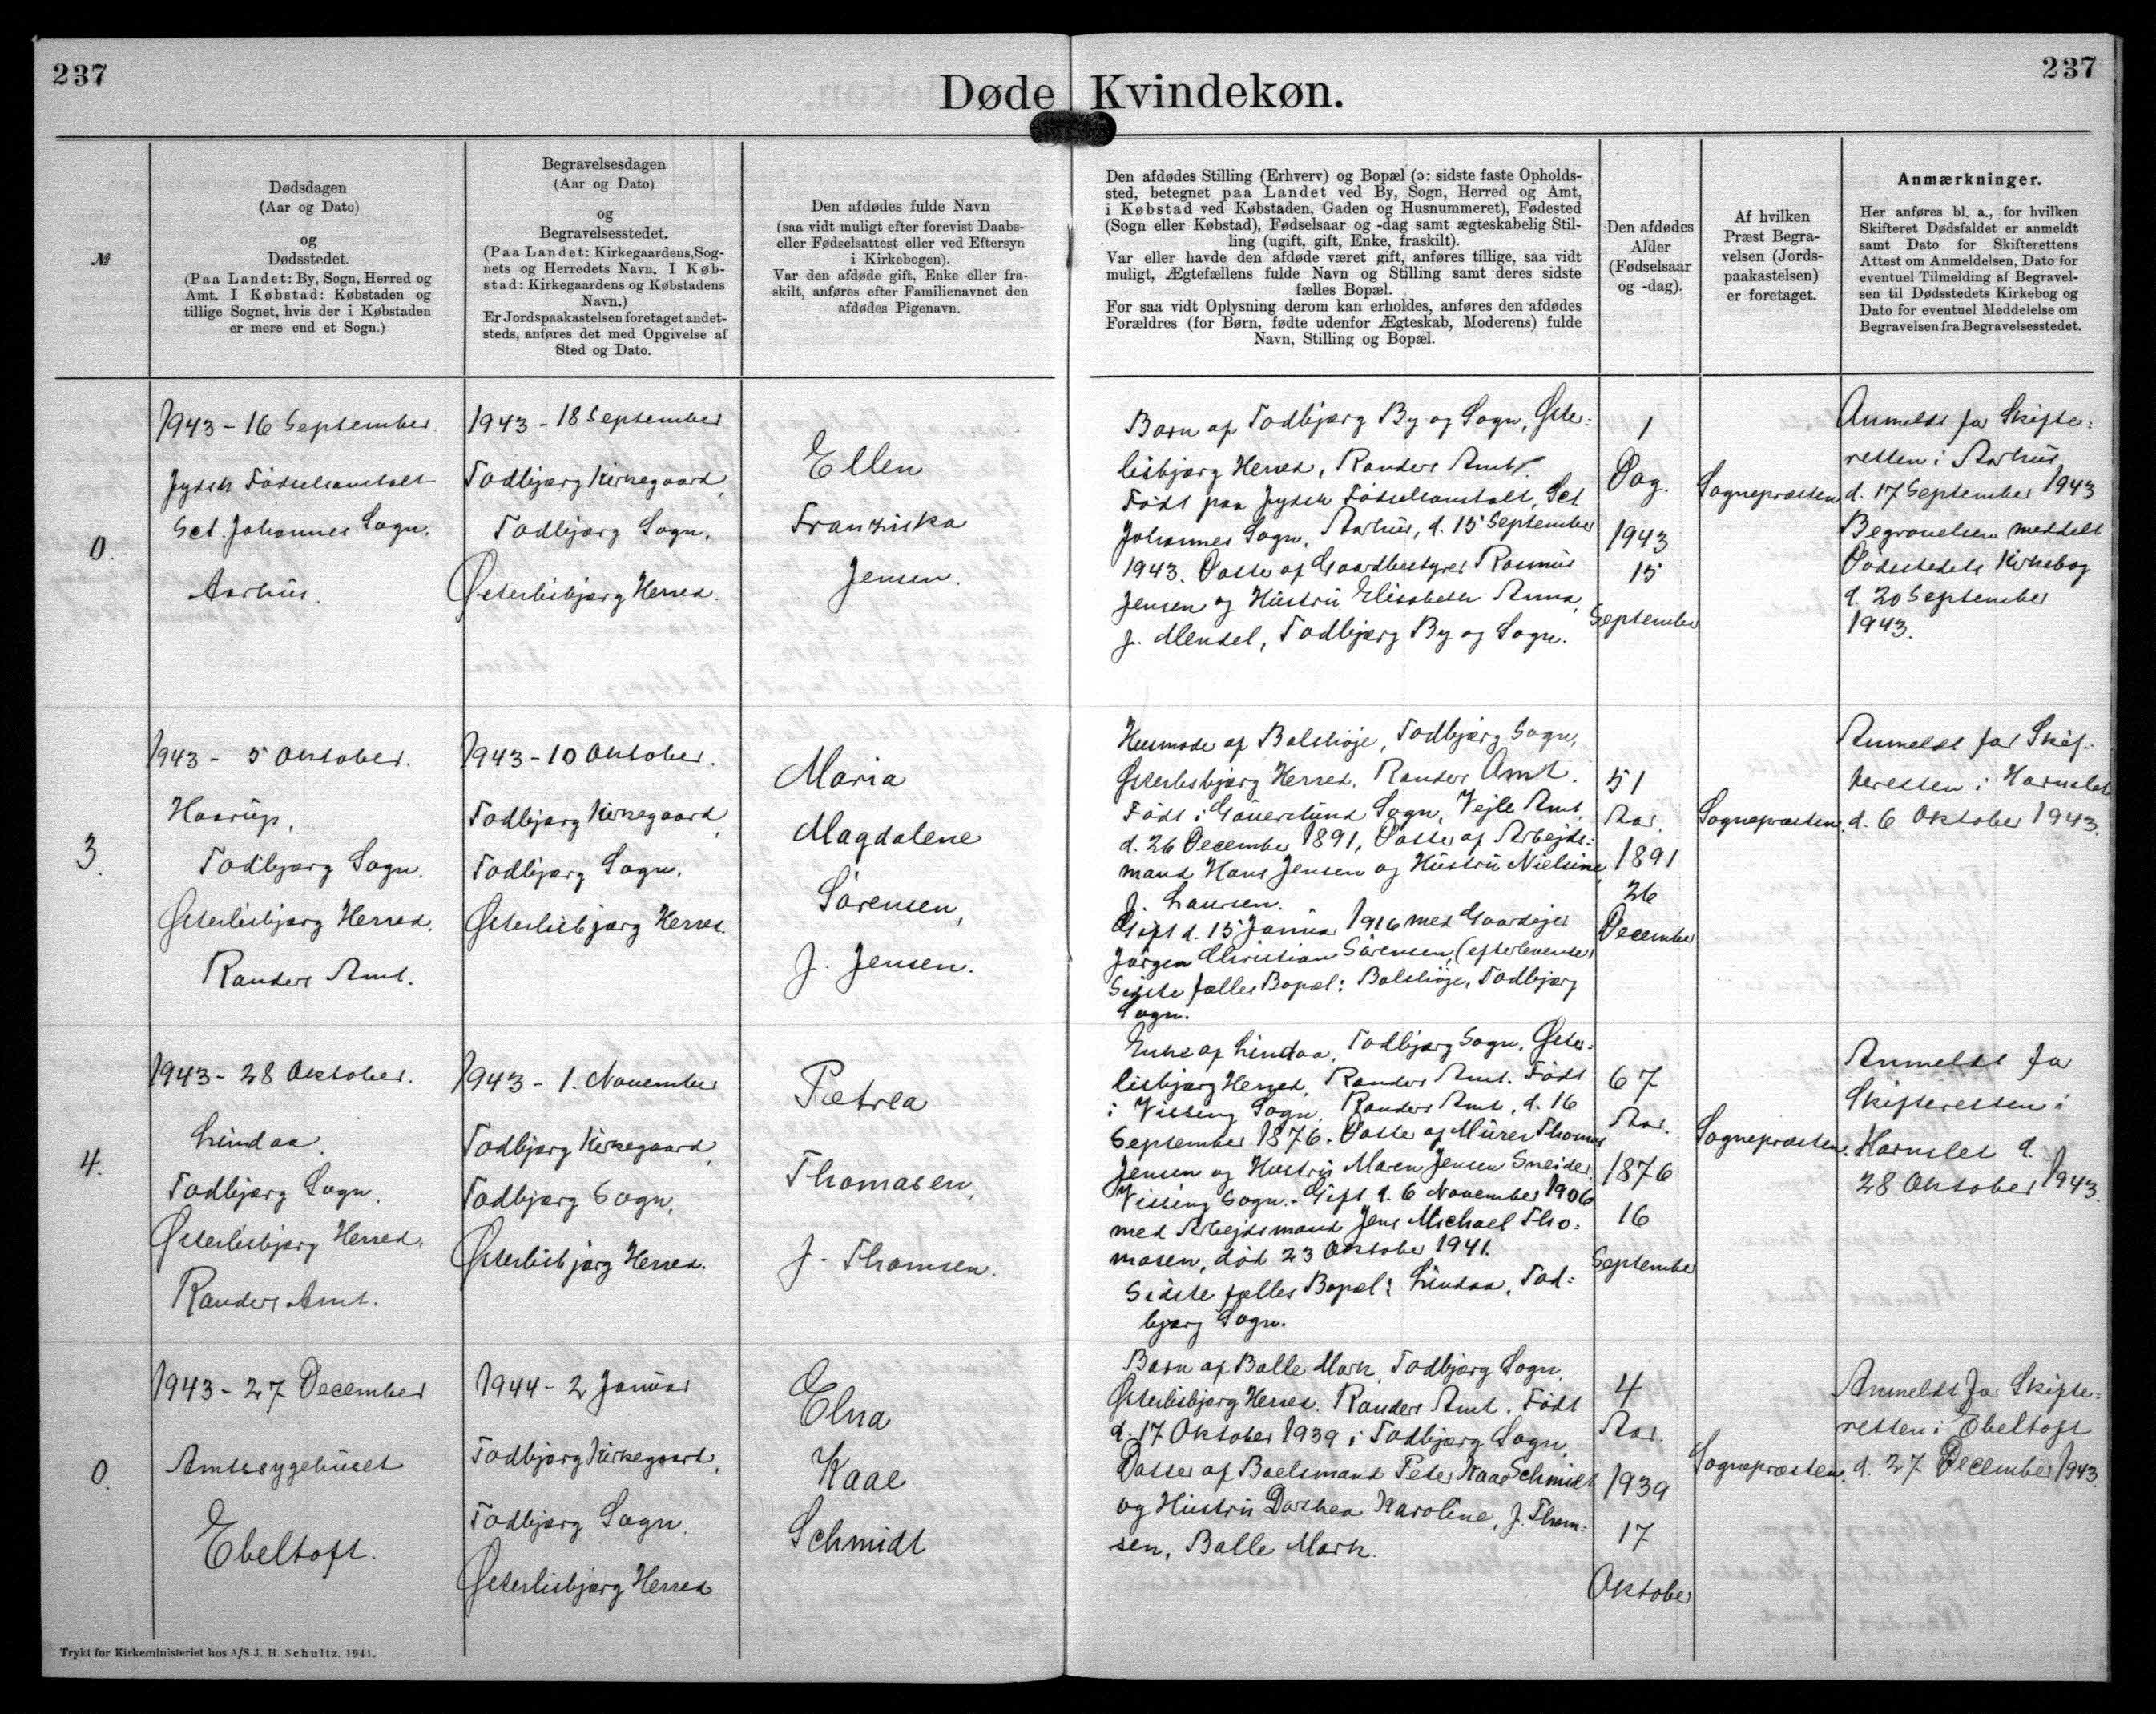 237
237
Døde Kvindekøn.
№
Dødsdagen
(Aar og Dato)
og
Dødsstedet.
(Paa Landet: By, Sogn, Herred og
Amt. I Købstad: Købstaden og
tillige Sognet, hvis der i Købstaden
er mere end et Sogn.)
Begravelsesdagen
(Aar og Dato)
og
Begravelsesstedet.
(Paa Landet: Kirkegaardens, Sog-
nets og Herredets Navn. I Køb-
stad: Kirkegaardens og Købstadens
Navn.)
Er Jordspaakastelsen foretaget andet-
steds, anføres det med Opgivelse af
Sted og Dato.
Den afdødes fulde Navn
(saa vidt muligt efter forevist Daabs-
eller Fødselsattest eller ved Eftersyn
i Kirkebogen).
Var den afdøde gift, Enke eller fra-
skilt, anføres efter Familienavnet den
afdødes Pigenavn.
Den afdødes Stilling (Erhverv) og Bopæl (ɔ: sidste faste Opholds-
sted, betegnet paa Landet ved By, Sogn, Herred og Amt,
i Købstad ved Købstaden, Gaden og Husnummeret), Fødested
(Sogn eller Købstad), Fødselsaar og -dag samt ægteskabelig Stil-
ling (ugift, gift, Enke, fraskilt).
Var eller havde den afdøde været gift, anføres tillige, saa vidt
muligt, Ægtefællens fulde Navn og Stilling samt deres sidste
fælles Bopæl.
For saa vidt Oplysning derom kan erholdes, anføres den afdødes
Forældres (for Børn, fødte udenfor Ægteskab, Moderens) fulde
Navn, Stilling og Bopæl.
Den afdødes
Alder
(Fødselsaar
og -dag).
Af hvilken
Præst Begra-
velsen (Jords-
paakastelsen)
er foretaget.
Anmærkninger.
Her anføres bl. a., for hvilken
Skifteret Dødsfaldet er anmeldt
samt Dato for Skifterettens
Attest om Anmeldelsen, Dato for
eventuel Tilmelding af Begravel-
sen til Dødsstedets Kirkebog og
Dato for eventuel Meddelelse om
Begravelsen fra Begravelsesstedet.
0.
1943 - 16 September.
Jydsk Fødselsanstalt
Sct. Johannes Sogn.
Aarhus.
1943 - 18 September
Todbjærg Kirkegaard,
Todbjærg Sogn,
Østerlisbjærg Herred.
Ellen
Franziska
Jensen.
Barn af Todbjærg By og Sogn, Øster=
lisbjærg Herred, Randers Amt.
Født paa Jydsk Fødselsanstalt, Sct.
Johannes Sogn, Aarhus, d. 15 September
1943. Datter af Gaardbestyrer Rasmus
Jensen og Hustru Elisabeth Anna,
f. Mensel, Todbjærg By og Sogn.
1
Dag.
1943
15
September
Sognepræsten
Anmeldt for Skifte=
retten i Aarhus
d. 17 September 1943
Begravelsen meddelt
Dødsstedets Kirkebog
d. 20 September
1943.
3.
1943 - 5 Oktober.
Haarup,
Todbjærg Sogn.
Østerlisbjærg Herred.
Randers Amt.
1943 - 10 Oktober.
Todbjærg Kirkegaard,
Todbjærg Sogn,
Østerlisbjærg Herred.
Maria
Magdalene
Sørensen,
f. Jensen.
Husmoder af Balshøje, Todbjærg Sogn,
Østerlisbjærg Herred, Randers Amt.
Født i Gauerslund Sogn, Vejle Amt,
d. 26 December 1891, Datter af Arbejds=
mand Hans Jensen og Hustru Nielsine,
f. Laursen.
Gift d. 15 Januar 1916 med Gaardejer
Jørgen Christian Sørensen, (efterlevende)
Sidste fælles Bopæl: Balshøje, Todbjærg
Sogn.
51
Aar.
1891
26
December
Sognepræsten.
Anmeldt for Skif-
teretten i Hornslet
d. 6 Oktober 1943.
4.
1943 - 28 Oktober.
Lindaa,
Todbjærg Sogn,
Østerlisbjærg Herred,
Randers Amt.
1943 - 1. November
Todbjærg Kirkegaard,
Todbjærg Sogn,
Østerlisbjærg Herred.
Petrea
Thomasen,
f. Thomsen.
Enke af Lindaa, Todbjærg Sogn, Øster=
lisbjærg Herred, Randers Amt. Født
i Vissing Sogn, Randers Amt, d. 16
September 1876. Datter af Murer Thomas
Jensen og Hustru Maren Jensen Sneider
Vissing Sogn. - Gift d. 6 November 1906
med Arbejdsmand Jens Michael Tho=
masen, død 23 Oktober 1941.
Sidste fælles Bopæl: Lindaa, Tod=
bjærg Sogn.
67
Aar.
1876
16
September
Sognepræsten.
Anmeldt for
Skifteretten i
Hornslet d.
28 Oktober 1943.
0.
1943 - 27 December
Amtssygehuset
Ebeltoft.
1944 - 2 Januar
Todbjærg Kirkegaard,
Todbjærg Sogn,
Østerlisbjærg Herred
Elna
Kaae
Schmidt
Barn af Balle Mark, Todbjærg Sogn,
Østerlisbjærg Herred. Randers Amt. Født
d. 17 Oktober 1939 i Todbjærg Sogn,
Datter af Boelsmand Peter Kaae Schmidt
og Hustru Dorthea Karoline, f. Thom=
sen, Balle Mark.
4
Aar.
1939
17
Oktober
Sognepræsten.
Anmeldt for Skifte=
retten i Ebeltoft
d. 27 December 1943.
Trykt for Kirkeministeriet hos A/S J. H. Schultz. 1941.